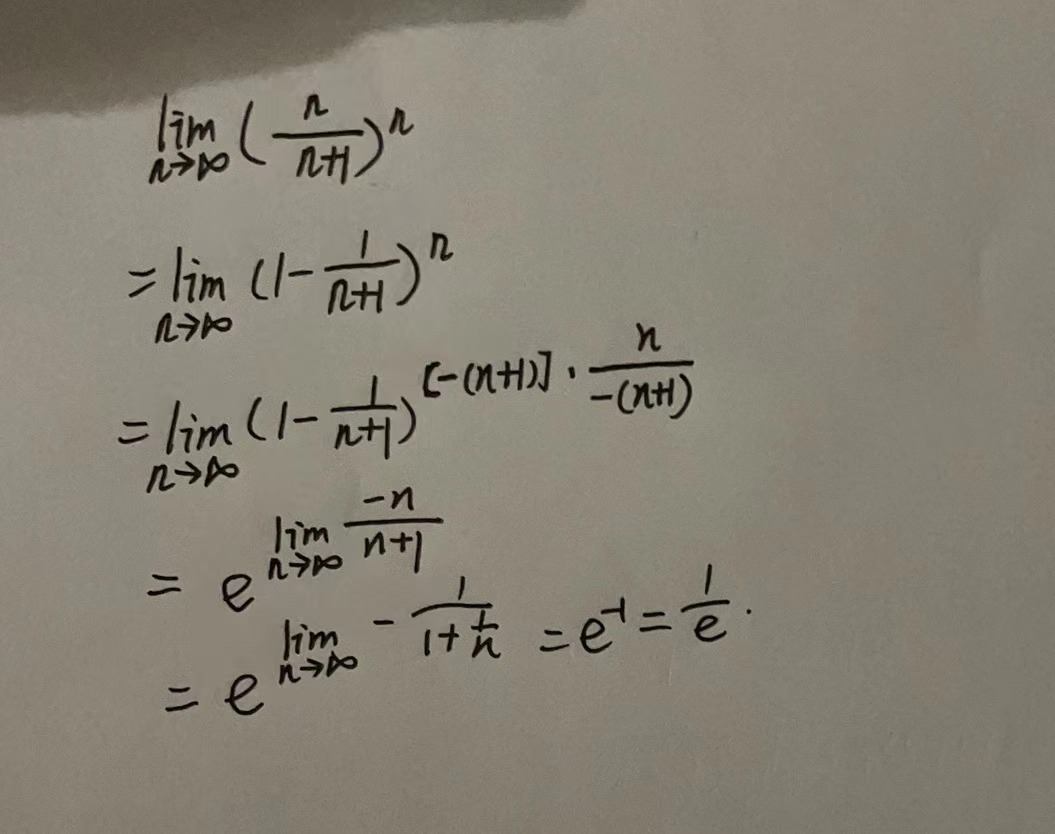 lim n→∞ (n/(n+1))^n
= lim n→∞ (1 - 1/(n+1))^n
= lim n→∞ (1 - 1/(n+1))^([-(n+1)] · n/(-(n+1)))
= e^(lim n→∞ -n/(n+1))
= e^(lim n→∞ - 1/(1+1/n)) = e^-1 = 1/e.